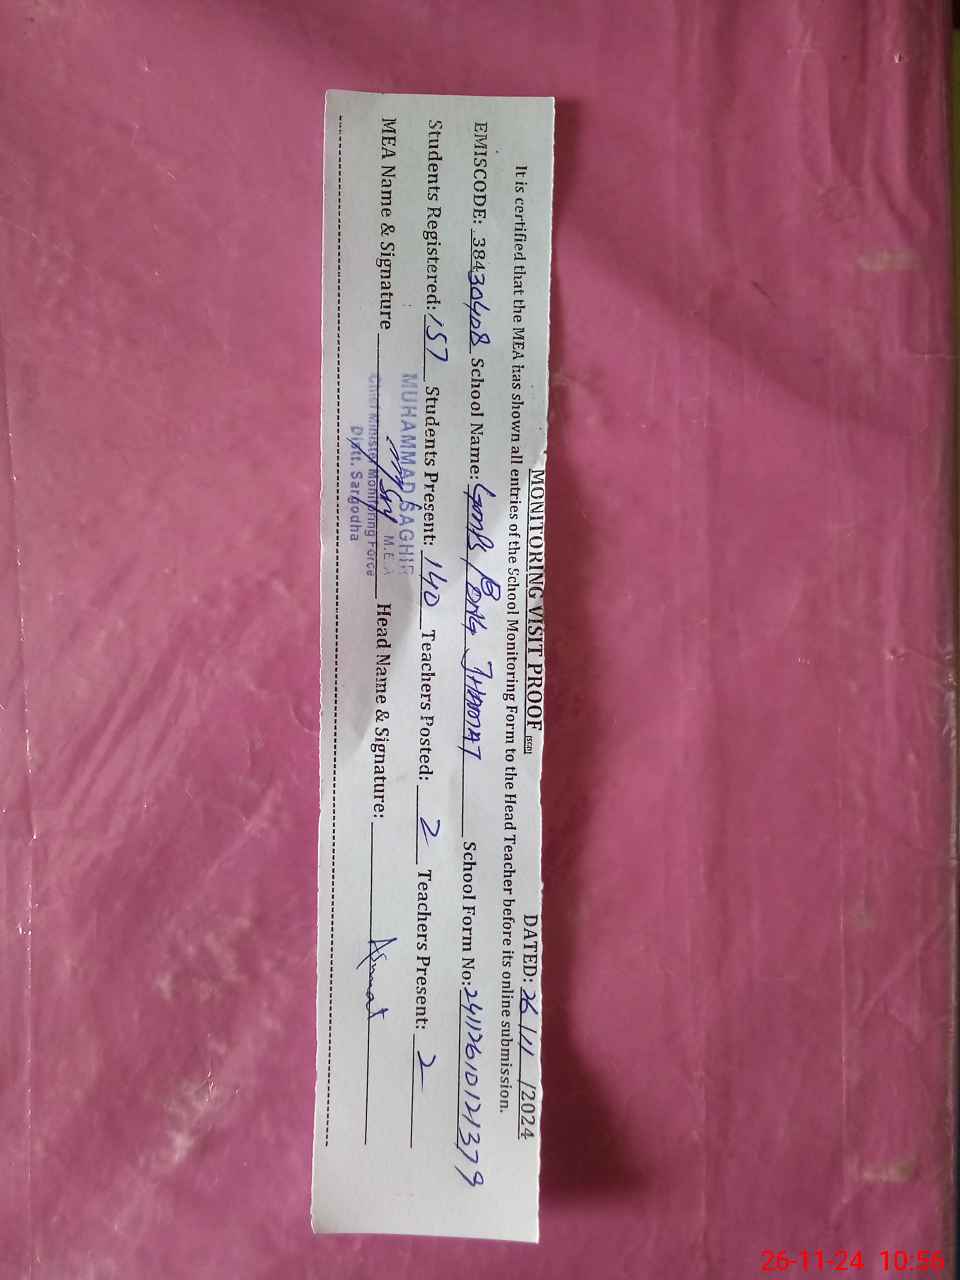 MONITORING VISIT PROOF (SED) DATED: 26/11/2024
It is certified that the MEA has shown all entries of the School Monitoring Form to the Head Teacher before its online submission.
EMISCODE: 38430408 School Name: GMPS/ BAG JHAMAT School Form No: 24112610121379
Students Registered: 157 Students Present: 140 Teachers Posted: 2 Teachers Present: 2
MEA Name & Signature Head Name & Signature: Asmat
MUHAMMAD SAGHIR
M.E.A
Chief Minister Monitoring Force
Distt. Sargodha
26-11-24 10:56